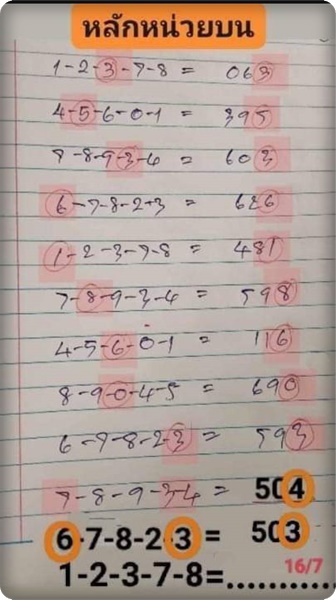 หลักหน่วยบน
1-2-3-7-8 = 063
4-5-6-0-1 = 395
7-8-9-3-4 = 603
6-7-8-2-3 = 626
1-2-3-7-8 = 481
7-8-9-3-4 = 598
4-5-6-0-1 = 116
8-9-0-4-5 = 690
6-7-8-2-3 = 593
7-8-9-3-4 = 504
6-7-8-2-3 = 503
16/7
1-2-3-7-8=..........